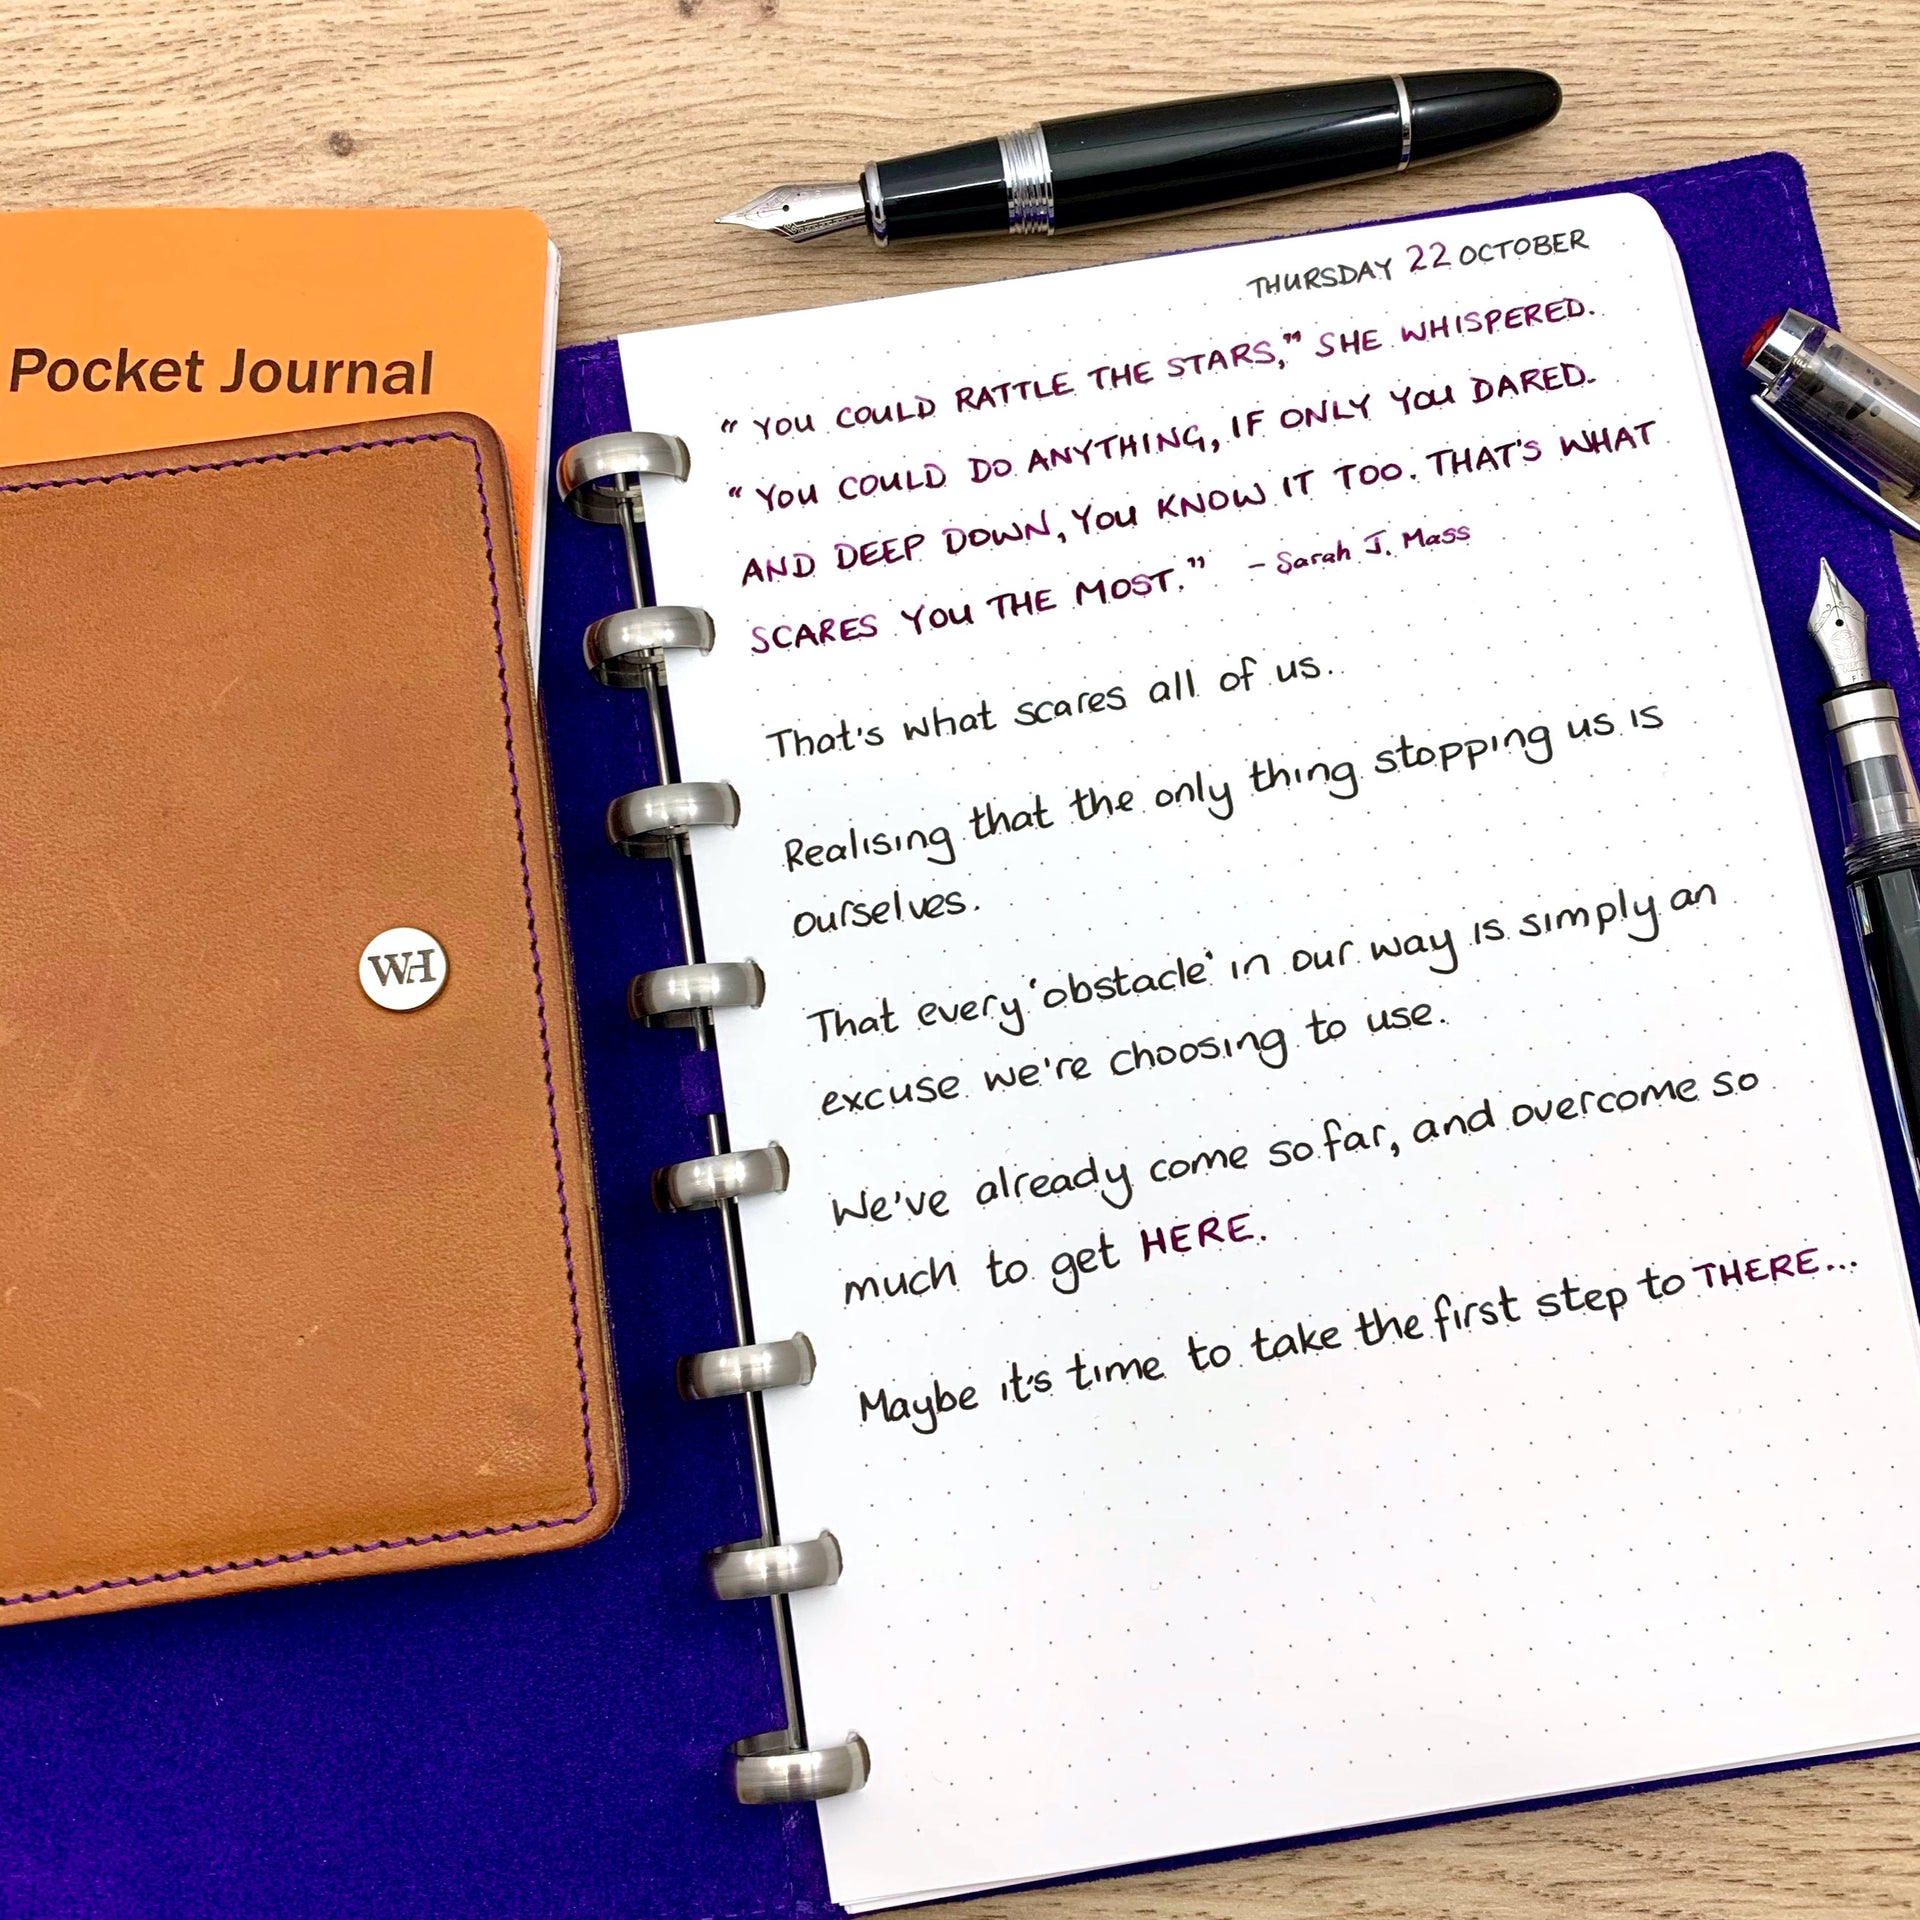 Pocket Journal
WH
THURSDAY 22 OCTOBER
“YOU COULD RATTLE THE STARS,” SHE WHISPERED.
“YOU COULD DO ANYTHING, IF ONLY YOU DARED.
AND DEEP DOWN, YOU KNOW IT TOO. THAT'S WHAT
SCARES YOU THE MOST.” - Sarah J. Mass
That's what scares all of us.
Realising that the only thing stopping us is
ourselves.
That every 'obstacle' in our way is simply an
excuse we're choosing to use.
We've already come so far, and overcome so
much to get HERE.
Maybe it's time to take the first step to THERE...